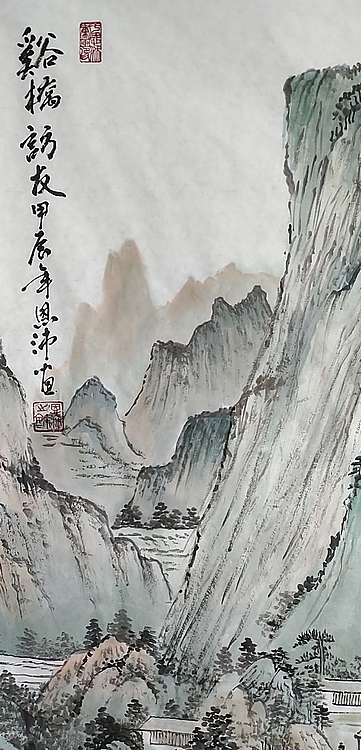 谿橋訪友甲辰年恩沛畫